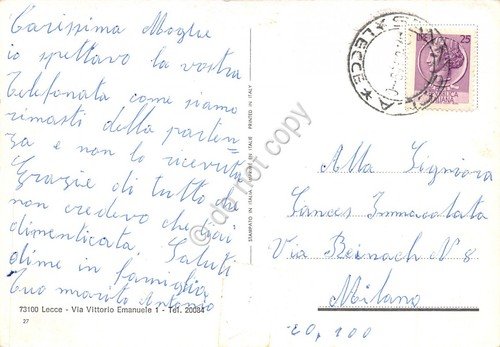 Carissima Moglie
io spettavo la vostra
telefonata come siamo
rimasti della parten-
za e non lo ricevuta
Grazie di tutto che
non credevo che mi
dimenticata Saluti
dime in famiglia
tuo marito Antonio
73100 Lecce - Via Vittorio Emanuele 1 - Tel. 20084
27
STAMPATO IN ITALIA PRINTED IN ITALY
do not copy
LECCE
25
Alla Signiora
Sances Immacolata
Via Beinach N° 8
Milano
20,100